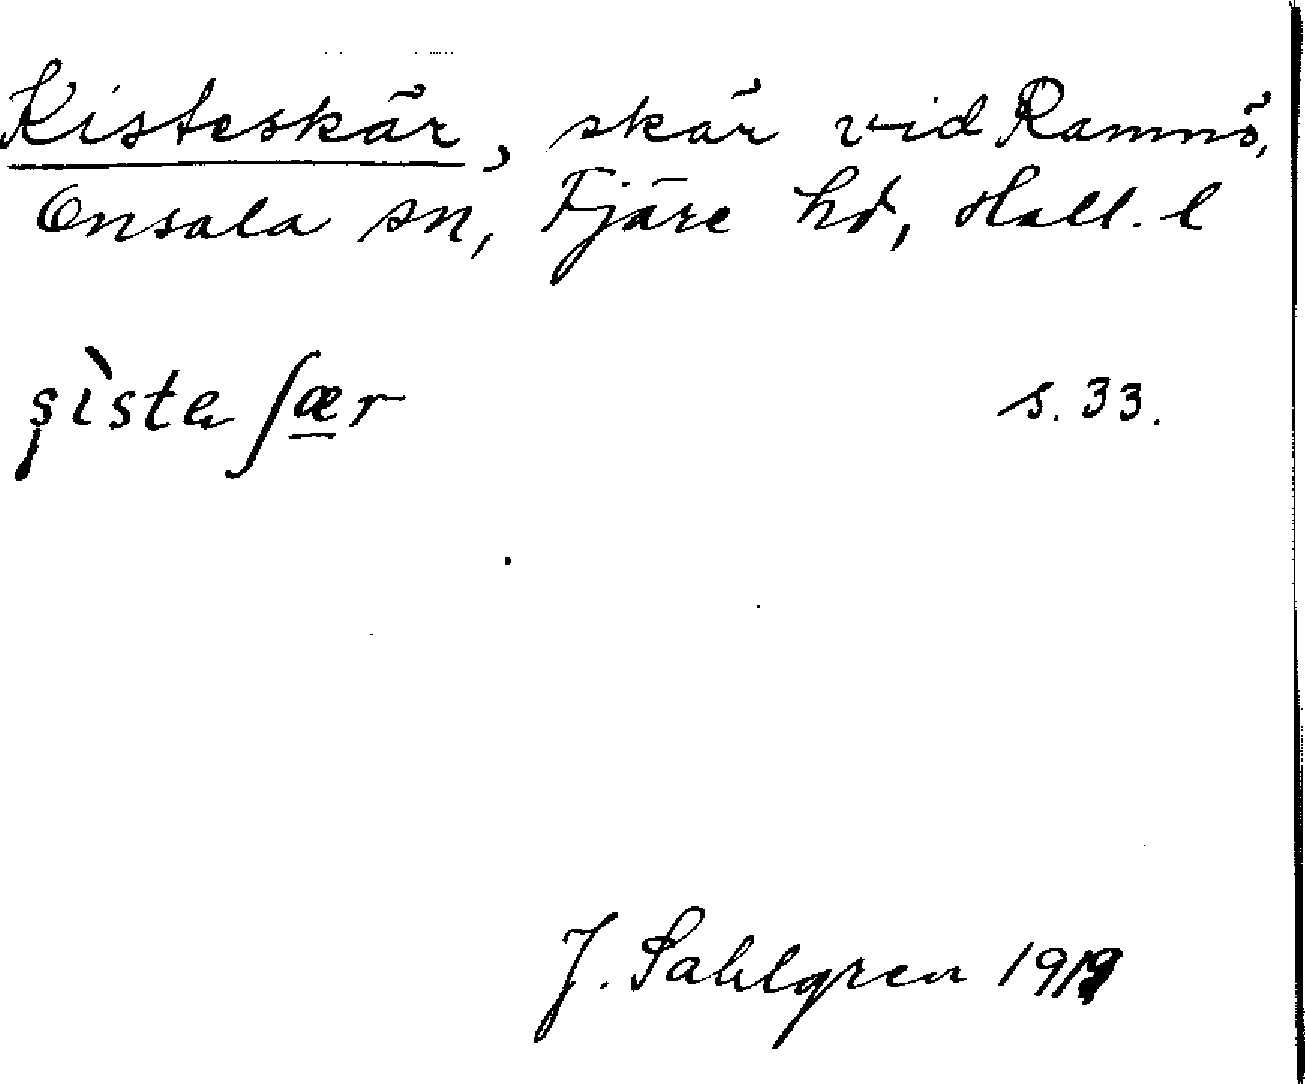 Kisteskär, skär vid Ramnö,
Onsala sn, Fjäre hd, Hall. l
s. 33.
J. Sahlgren 1919